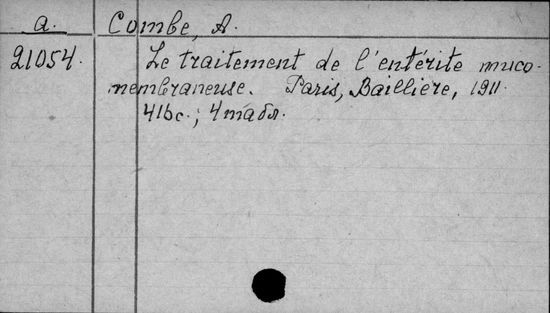 a. Combe, A.
21054. Le traitement de l'entérite muco-
membraneuse. Paris, Baillière, 1911.
416c.; 4табл.